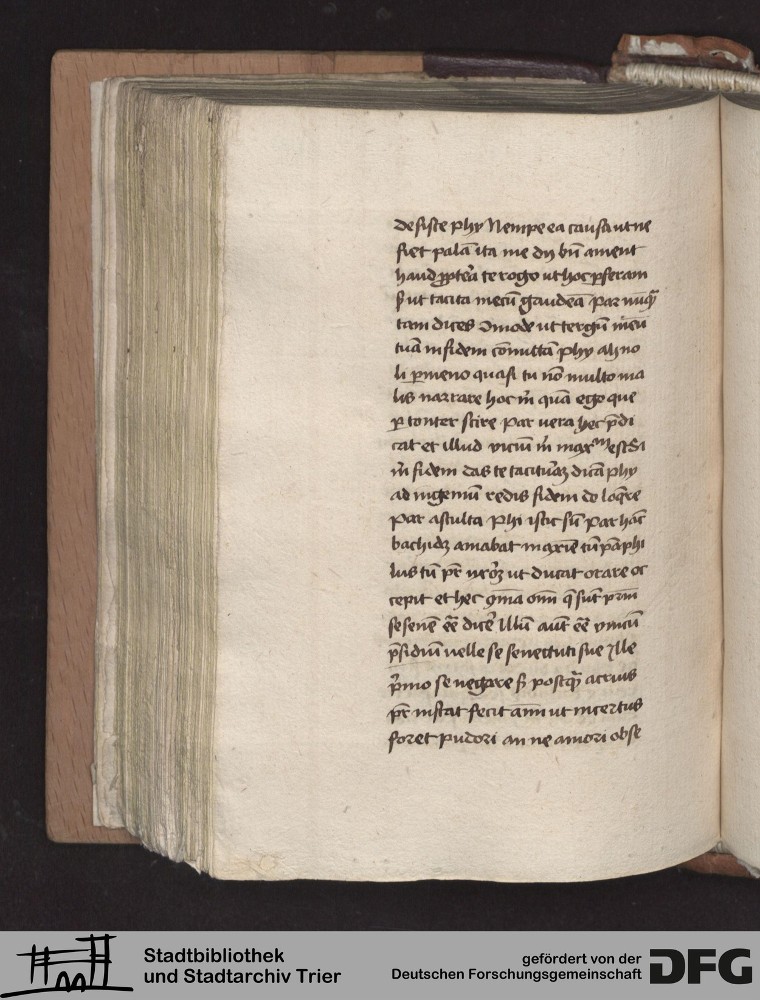 desiste phy Nempe ea causa ut ne
fiet palā ita me dij bn̄ ament
haud ꝓpterā te rogo ut hoc ꝑferam
sꝫ ut tacita mecū gaudeā Par nūqꝫ
tam dices ɔmode ut tergū meū
tuā in fidem cōmittā Phy ah no
li ꝑmeno quasi tu nō multo ma
lis narrare hoc m̄ quā ego que
ꝑconter scire Par vera hec p̄di
cat et illud viciū m̄ maxᵐ est Si
m̄ fidem das te tacituꝝ dicā phy
ad ingeniū redis fidem do loqr̄e
Par asculta Phi istic sū Par hāc
bachidꝫ amabat maxīe tū pāphi
lus tū pr̄ uxoꝫ ut ducat orare oc
cepit et hec ꝯmīa om̄ q̄ sūt pr̄m
se senē ēe dice᷑ illū aūt ēe vnicū
p̄sidiū velle se senectuti sue Ille
p̄mo se negare sꝫ postqꝫ acrius
pr̄ instat fecit anī ut incertus
foret pudori an ne amori obse
Stadtbibliothek
und Stadtarchiv Trier
gefördert von der
Deutschen Forschungsgemeinschaft
DFG